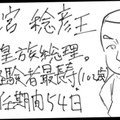 宮稔彦王
皇族総理。
経験者最長(102歳)
任期間54日